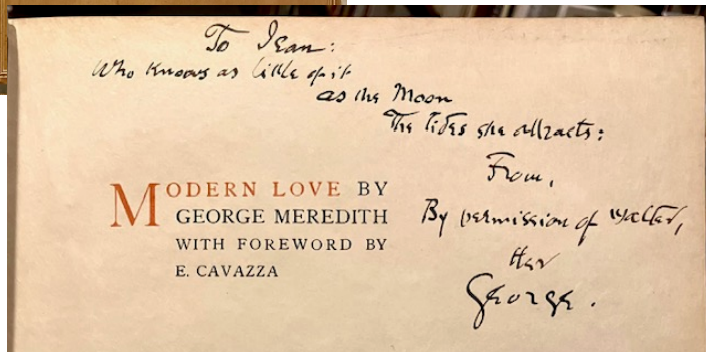 To Jean:
Who knows as little of it
as the Moon
The tides she attracts:
From,
By permission of Walter,
Her
George.
MODERN LOVE BY
GEORGE MEREDITH
WITH FOREWORD BY
E. CAVAZZA